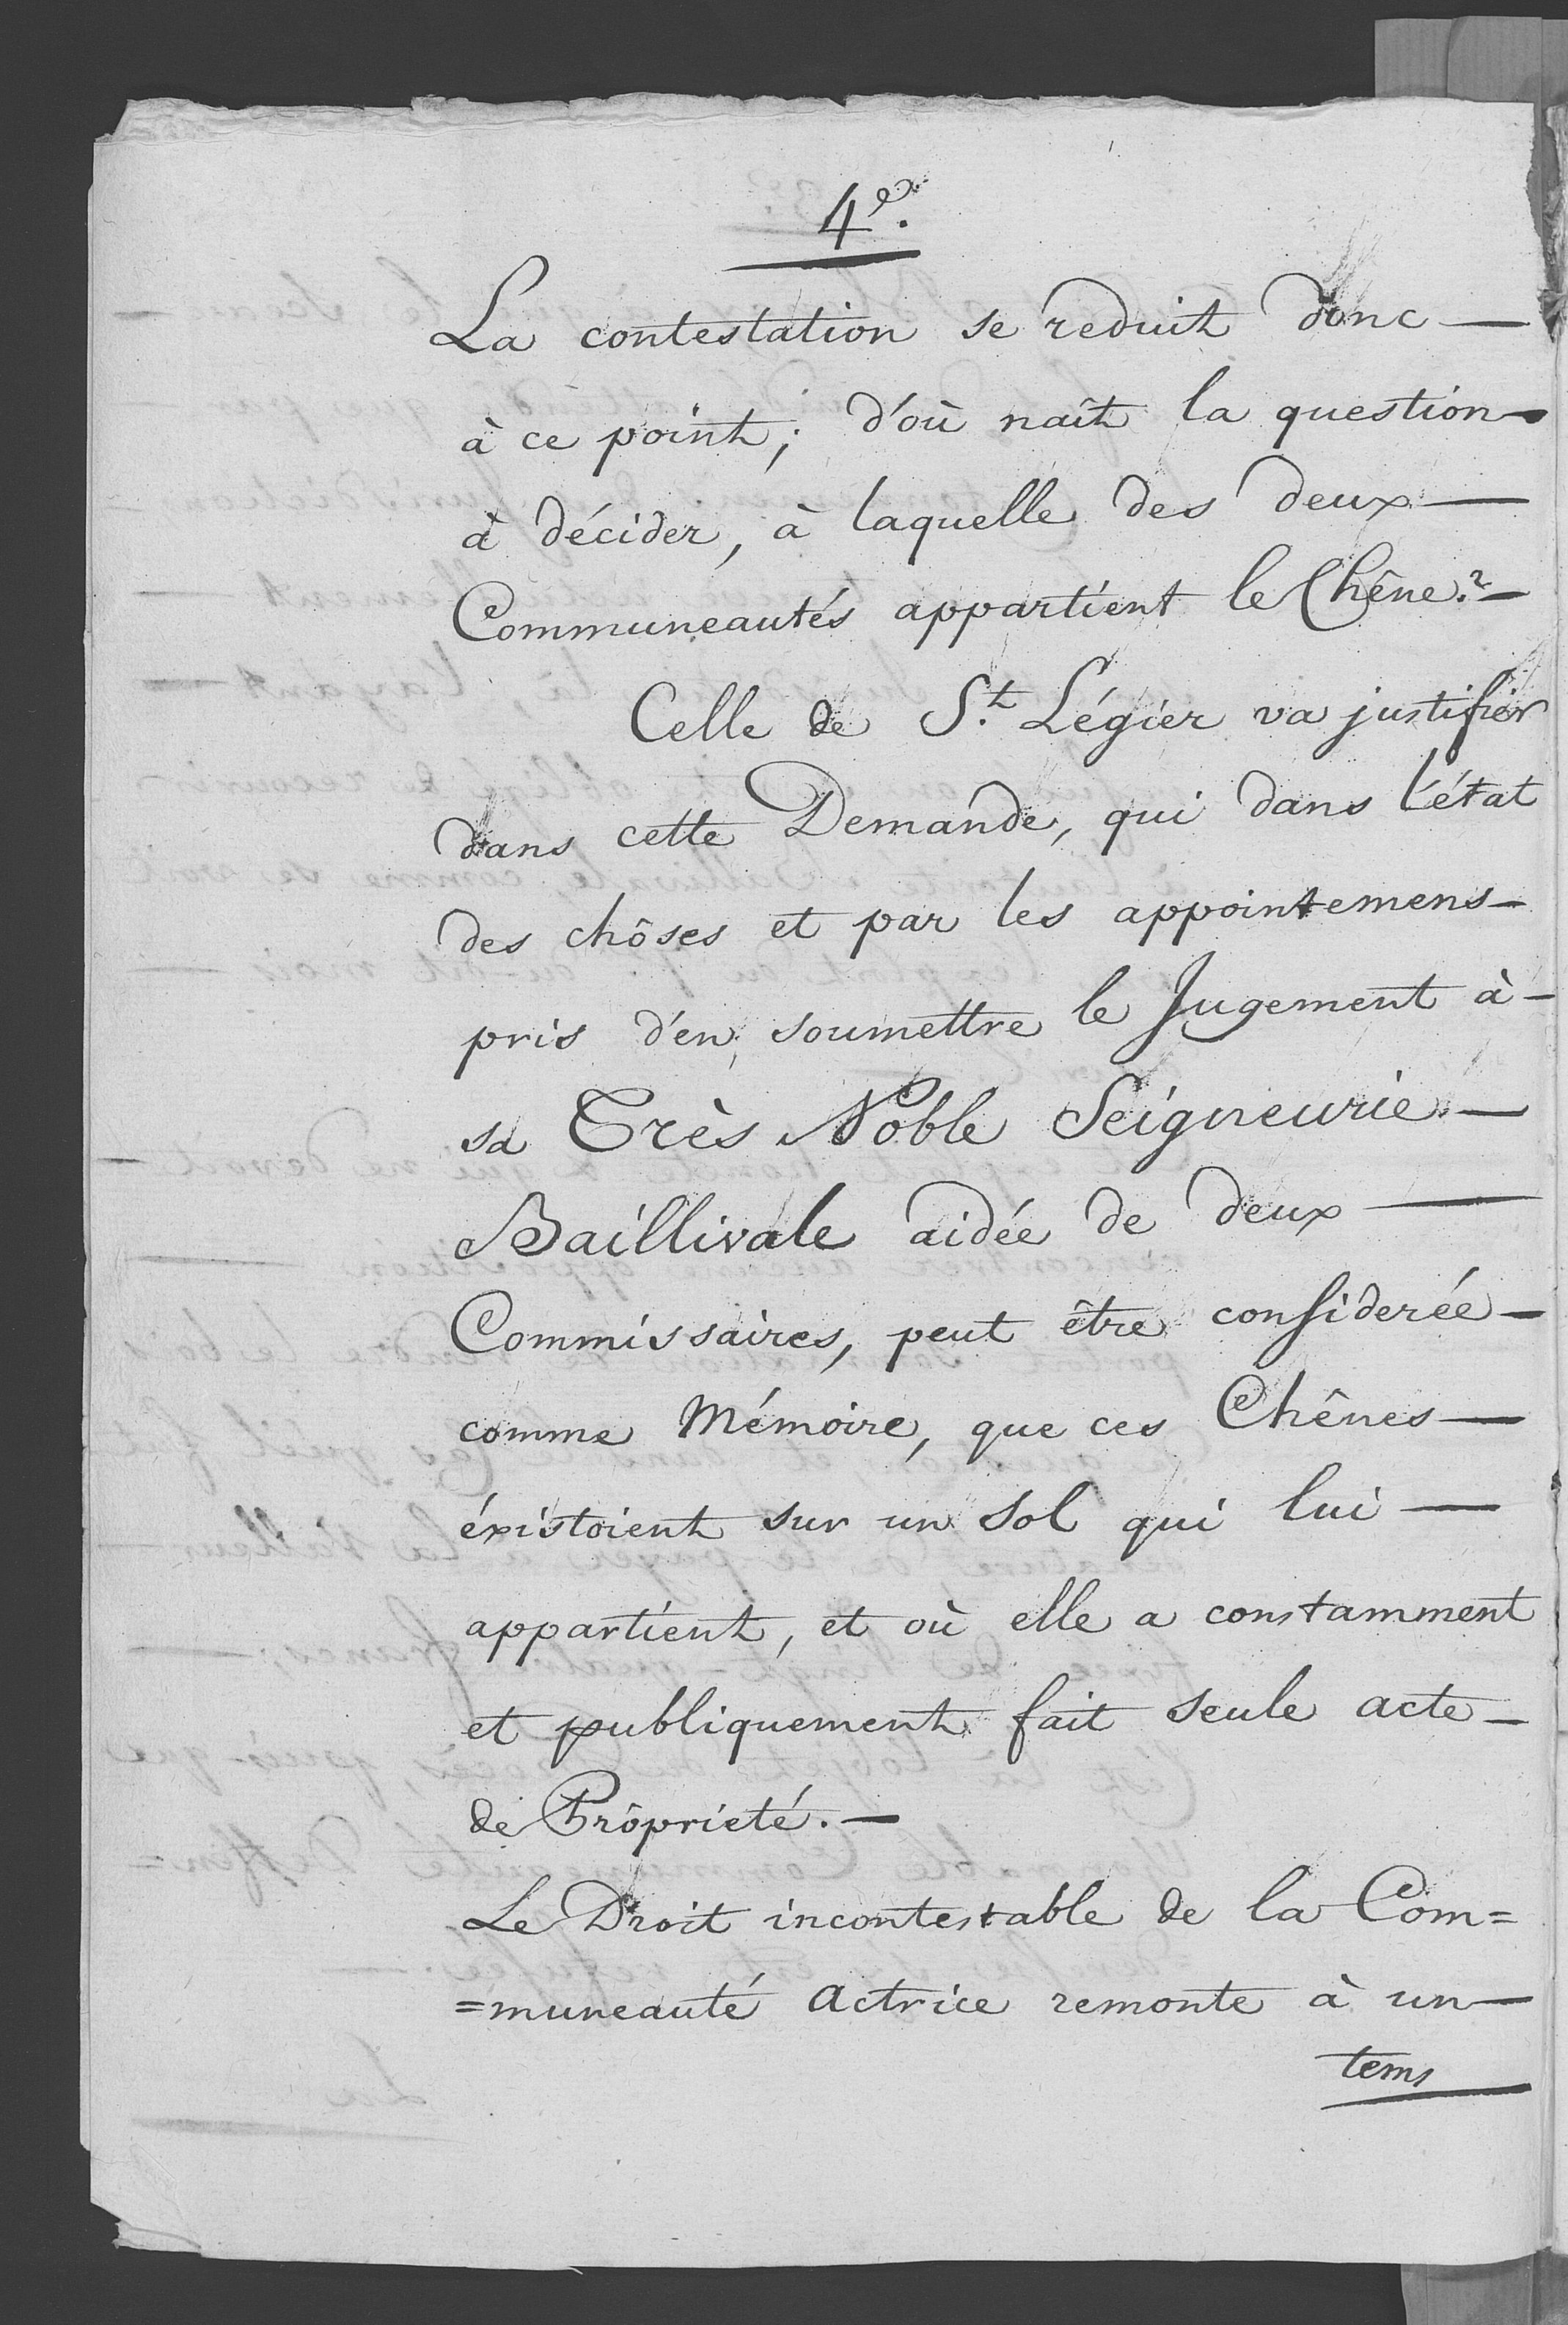 4e.
La contestation se reduit donc —
à ce point; d'où naît la question —
à décider, à laquelle des deux —
Communeautés appartient le Chêne? —
Celle de St. Légier va justifier
dans cette Demande, qui dans l'état
des chôses et par les appointemens —
pris d'en soumettre le Jugement à —
sa Très Noble Seigneurie —
Baillivale aidée de deux —
Commissaires, peut être considerée —
comme Mémoire, que ces Chênes —
éxistoient sur un Sol qui lui —
appartient, et où elle a constamment
et publiquement fait seule acte —
de Propriété. —
Le Droit incontestable de la Com=
=muneauté Actrice remonte à un —
tems